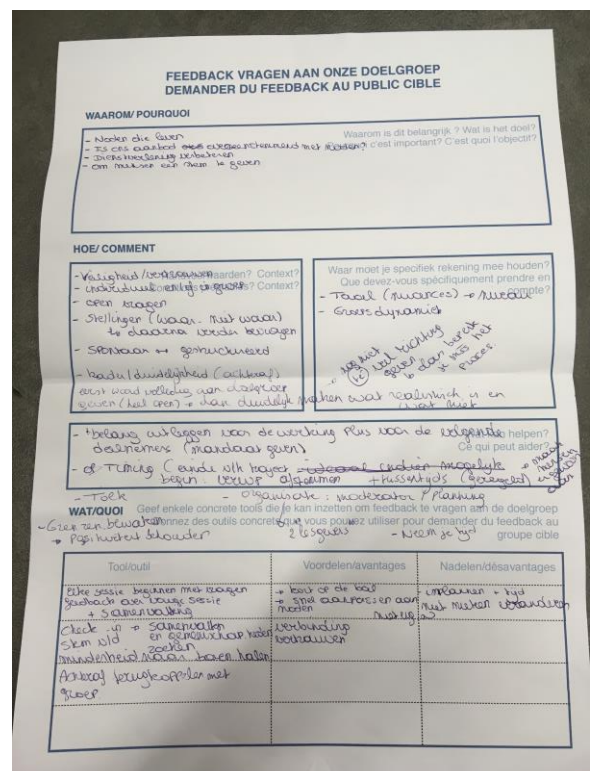 FEEDBACK VRAGEN AAN ONZE DOELGROEP
DEMANDER DU FEEDBACK AU PUBLIC CIBLE
WAAROM/ POURQUOI
Waarom is dit belangrijk ? Wat is het doel?
c'est important? C'est quoi l'objectif?
- Noden die leven
- Is ons aanbod overeenstemmend met noden?
- Dienstverlening verbeteren
- om mensen een stem te geven
HOE/ COMMENT
aarden? Context?
? Context?
- Veiligheid/vertrouwen
- individueel en/of in groep
- open vragen
- Stellingen (waar - niet waar)
↳ daarna verder bevragen
- Spontaan ↔ gestructureerd
- kader/duidelijkheid (achteraf)
eerst woord volledig aan doelgroep
geven (heel open) → dan duidelijk maken wat realistisch is en
wat niet
Waar moet je specifiek rekening mee houden?
Que devez-vous spécifiquement prendre en
compte?
- Taal (nuances) → niveau
- Groepsdynamiek
→ nog niet
te veel richting
geven
↳ dan bereik
je mis het
proces.
helpen?
Ce qui peut aider?
- belang uitleggen voor de werking plus voor de volgende
deelnemers (mandaat geven)
- Timing (einde v/h traject
begin: +tussentijds (geregeld)
- Toek
- organisatie: moderator / planning
WAT/QUOI
Geef enkele concrete tools die je kan inzetten om feedback te vragen aan de doelgroep
onnez des outils concrets que vous pouvez utiliser pour demander du feedback au
groupe cible
- Grenzen bewaken
- Neem je tijd
Tool/outil Voordelen/avantages Nadelen/désavantages
Elke sessie beginnen met vragen
feedback over vorige sessie
+ samenvatting
→ kort op de bal
→ snel aanpassen aan
noden
- inplannen + tijd
niet meteen veranderen
Check-in → samenvatten
stem v/d en gemeenschap
zoeken
minderheid naar boven halen
verbinding
vertrouwen
Achteraf terugkoppelen met
groep